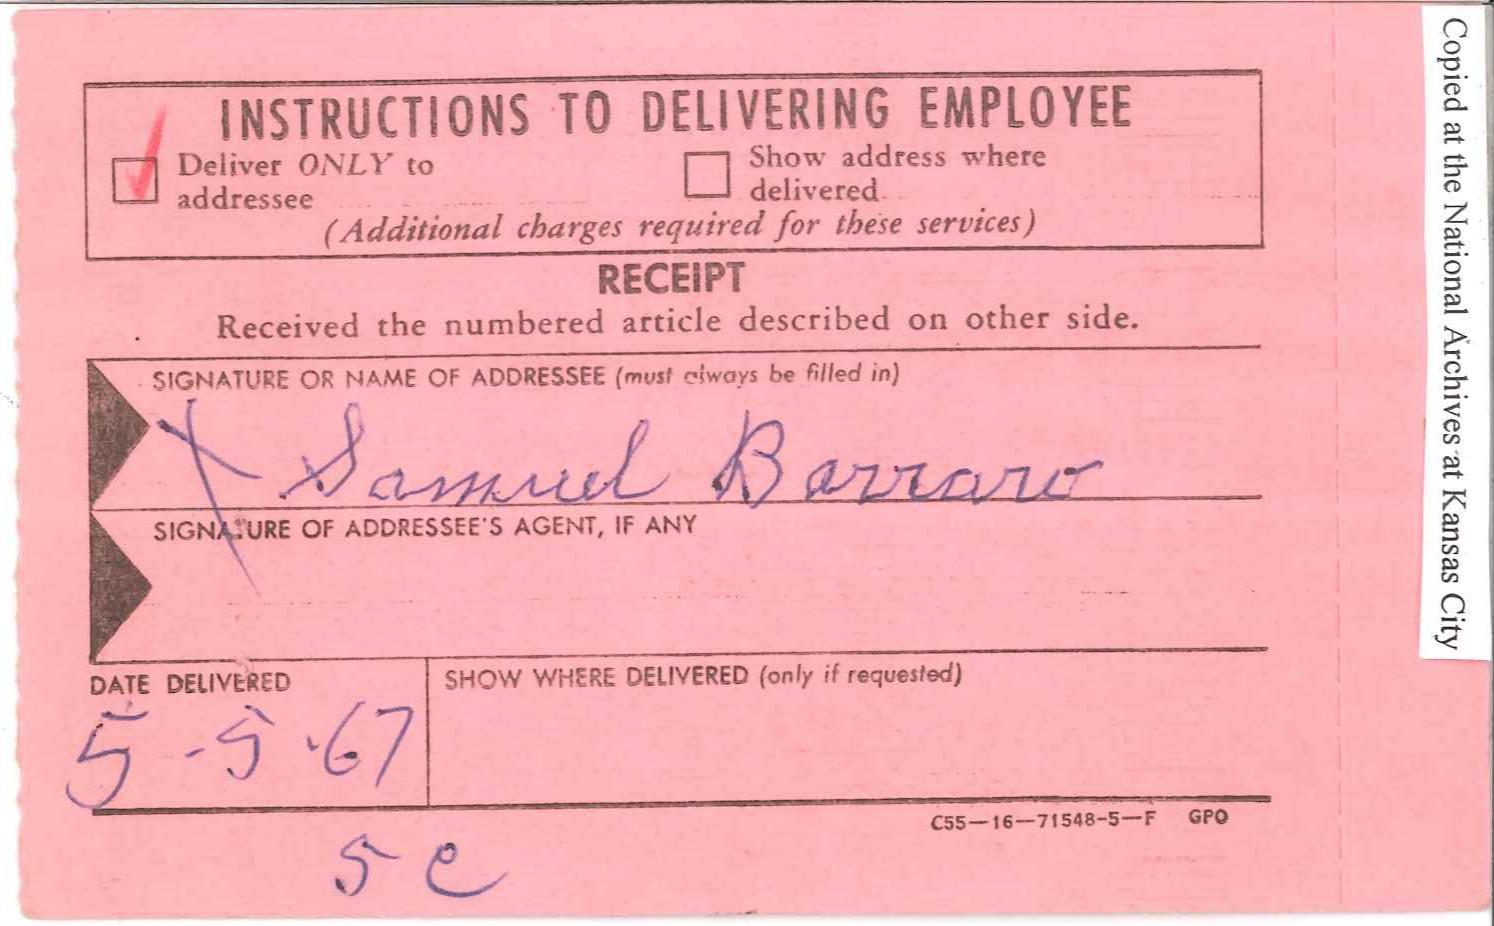 INSTRUCTIONS TO DELIVERING EMPLOYEE
Deliver ONLY to addressee
Show address where delivered
(Additional charges required for these services)
RECEIPT
Received the numbered article described on other side.
SIGNATURE OR NAME OF ADDRESSEE (must always be filled in)
X Samuel Barraro
SIGNATURE OF ADDRESSEE'S AGENT, IF ANY
DATE DELIVERED
5-5-67
SHOW WHERE DELIVERED (only if requested)
C55—16—71548-5—F GPO
5 c
Copied at the National Archives at Kansas City